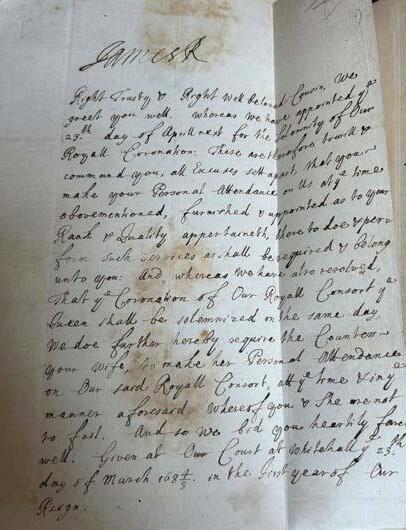 James R
Right Trusty & Right Well beloved Cousin, We
greet you well. Whereas We have appointed ye
23th day of Aprill next for the Solemnity of Our
Royall Coronation. These are therefore to will &
command you, all Excuses sett apart, that you
make your Personal Attendance on Us at ye time
abovementioned, furnished & appointed as to your
Rank & Quality appertaineth, there to doe & per-
form such Services as shall be required & belong
unto you: And whereas We have also resolved,
That ye Coronation of Our Royall Consort ye
Queen shall be solemnized on the same day,
We doe further hereby require the Countess
your Wife, to make her Personal Attendance
on Our said Royall Consort, at ye time & in ye
manner aforesaid. Whereof you & She are not
to fail. And so We bid you heartily fare
well. Given at Our Court at Whitehall ye 23th
day of March 168 4/5 in the first year of Our
Reign.